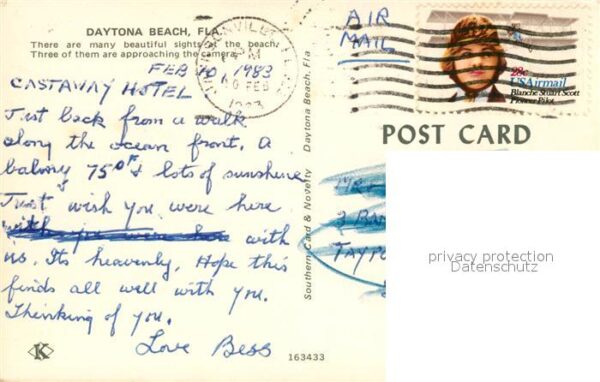 DAYTONA BEACH, FLA.
There are many beautiful sights at the beach.
Three of them are approaching the camera.
FEB 10, 1983
CASTAWAY HOTEL
Just back from a walk
along the ocean front. A
balmy 75° F & lots of sunshine
Just wish you were here
with you were here with
us. Its heavenly. Hope this
finds all well with you.
Thinking of you.
Love Bess
K
163433
Southern Card & Novelty Daytona Beach, Fla
PM
FEB
1983
AIR
MAIL
28c
USAirmail
Blanche Stuart Scott
Pioneer Pilot
POST CARD
3
privacy protection
Datenschutz